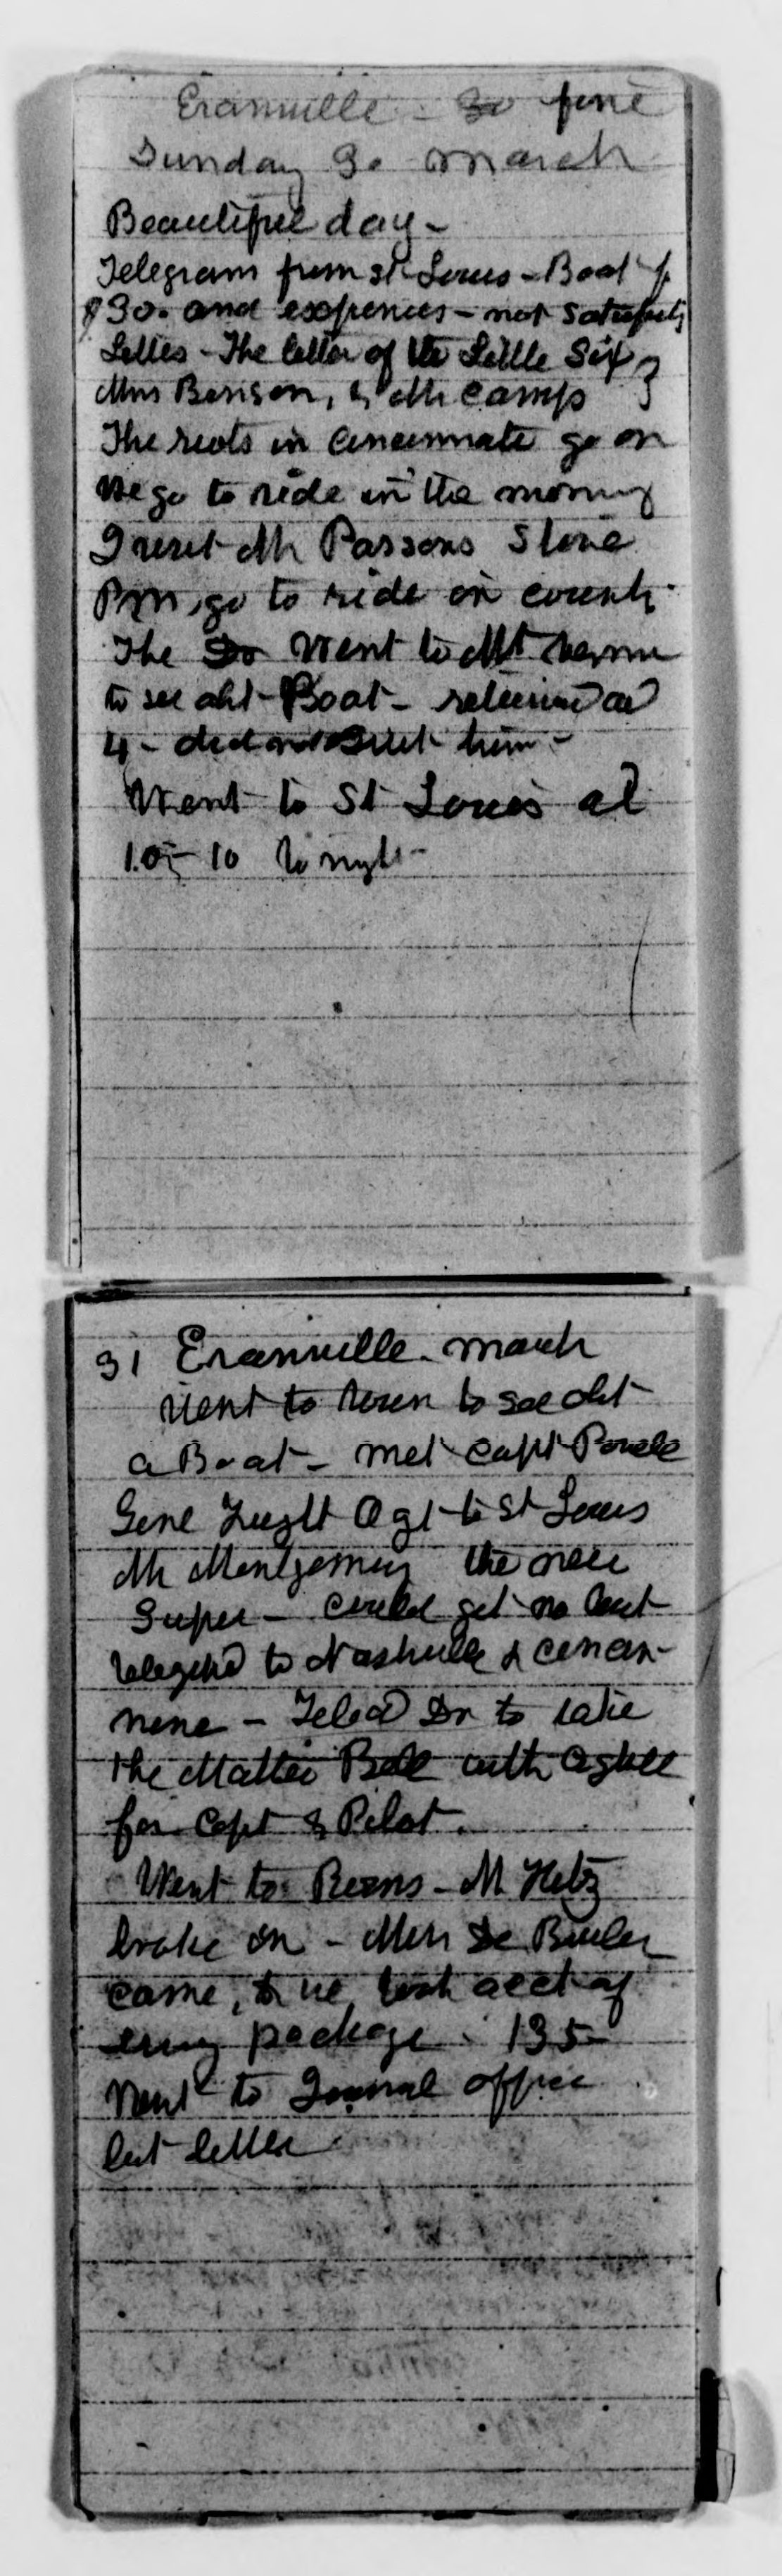 Evansville - 30 fine
Sunday 30 March
Beautiful day -
Telegram from St Louis - Boat f
$30. and expences - not satisfacty
Letters - The letter of the Little Six }
Mrs Benson, & Mr Camp
The riots in Cincinnate go on
We go to ride in the morning
I visit Mr Parsons Store
PM, go to ride in country
The Dr Went to Mt Vernon
to see abt Boat - returned at
4 - did not suit him -
Went to St Louis at
10 to night -
31 Evansville. March
Went to town to see abt
a Boat - met Capt
Genl Freight Agt to St Louis
Mr Montgomery the new
Super - could get no boat
telegphd to Nashville & Cincin-
none - Teled Dr to take
the Mattie Bell with
for Capt & Pilot.
Went to Rooms - Mr Hebz
broke in - Mrs De Bruler
came, & we took acct of
every package. 135
Went to Journal office
but letter